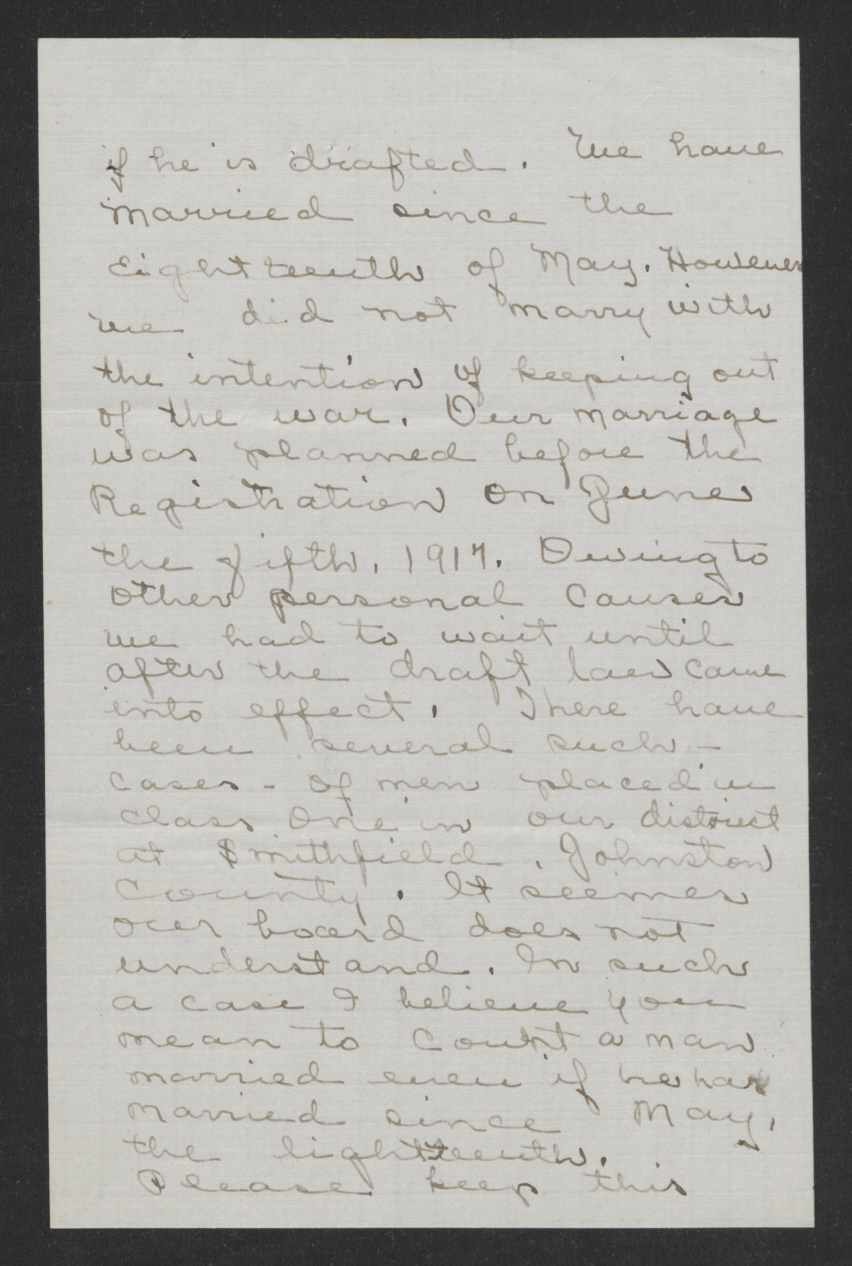 if he is drafted. We have
married since the
Eightteenth of May. However
we did not marry with
the intention of keeping out
of the war. Our marriage
was planned before the
Registration on June
the fifth, 1917. Owing to
other personal causes
we had to wait until
after the draft law came
into effect. There have
been several such -
cases - of men placed in
class One in our district
at Smithfield, Johnston
County. It seemes
our board does not
understand. In such
a case I believe you
mean to count a man
married even if he has
married since May,
the lightteenth.
Please keep this